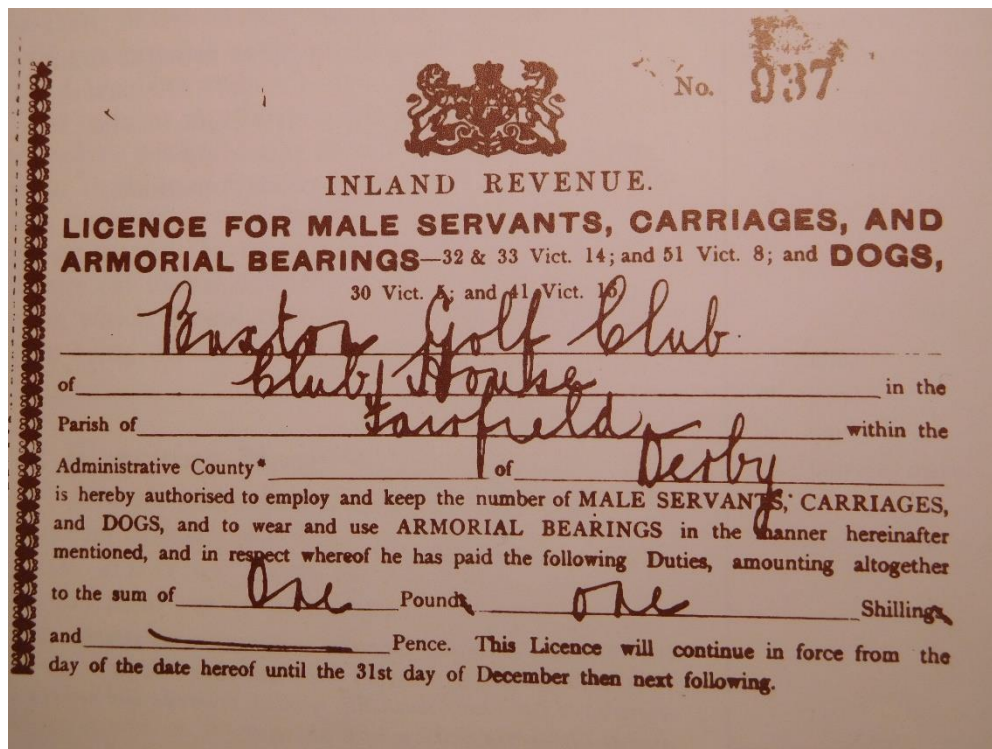 No. 937
INLAND REVENUE.
LICENCE FOR MALE SERVANTS, CARRIAGES, AND
ARMORIAL BEARINGS—32 & 33 Vict. 14; and 51 Vict. 8; and DOGS,
30 Vict. 5; and 41 Vict. 15
Buxton Golf Club.
of Club House in the
Parish of Fairfield within the
Administrative County* of Derby
is hereby authorised to employ and keep the number of MALE SERVANTS, CARRIAGES,
and DOGS, and to wear and use ARMORIAL BEARINGS in the manner hereinafter
mentioned, and in respect whereof he has paid the following Duties, amounting altogether
to the sum of One Pounds one Shillings
and Pence. This Licence will continue in force from the
day of the date hereof until the 31st day of December then next following.